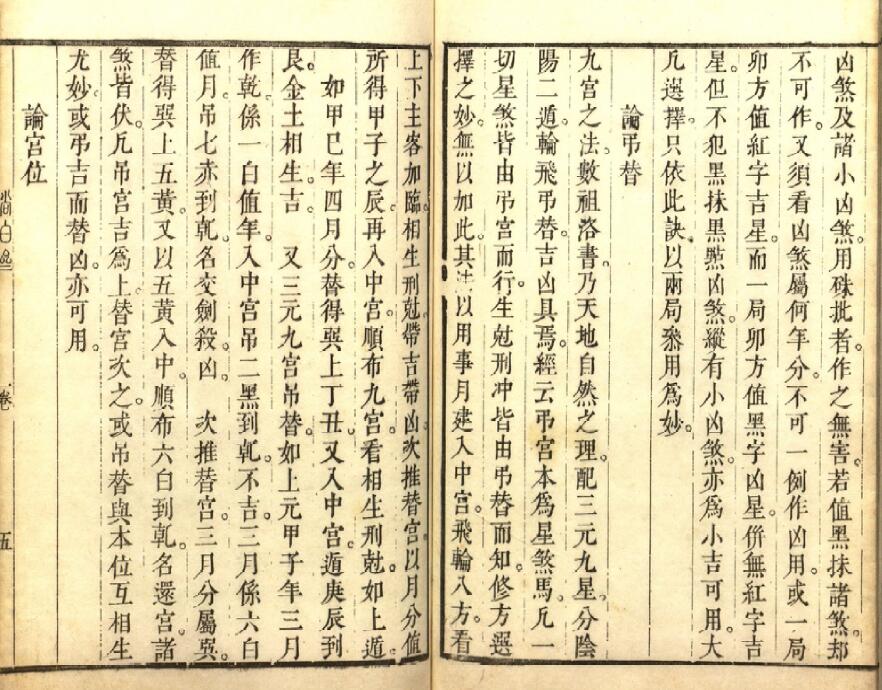 凶煞及諸小凶煞。用硃批者。作之無害。若值黑抹諸煞。却
不可作。又須看凶煞屬何年分。不可一例作凶用。或一局
卯方值紅字吉星。而一局卯方值黑字凶星。倂無紅字吉
星。但不犯黑抹黑㸃凶煞。縱有小凶煞。亦爲小吉可用大
凡選擇只依此訣以兩局叅用爲妙。
論弔替
九宫之法。數祖洛書。乃天地自然之理。配三元九星。分陰
陽二遁。輪飛弔替。吉凶具焉。經云弔宫本爲星煞馬。凡一
切星煞皆由弔宫而行。生尅刑冲皆由弔替而知。修方選
擇之妙。無以加此。其法以用事月建入中宫。飛輪八方。看
上下主客加臨。相生刑尅。帶吉帶凶。次推替宫。以月分值
所得甲子之辰。再入中宫。順布九宫。看相生刑尅如上遁。
如甲巳年四月分。替得巽上丁丑。又入中宫。遁庚辰到
艮。金土相生吉。又三元九宫吊替。如上元甲子年三月
作乾。係一白值年。入中宫吊二黑到乹。不吉。三月係六白
值月。吊七赤到乹。名交劍殺。凶。次推替宫。三月分屬巽。
替得巽上五黄。又以五黄入中。順布六白到乹。名還宫。諸
煞皆伏。凡吊宫吉爲上。替宫次之。或吊替與本位互相生
尤妙。或弔吉而替凶。亦可用。
論宫位
卷
五